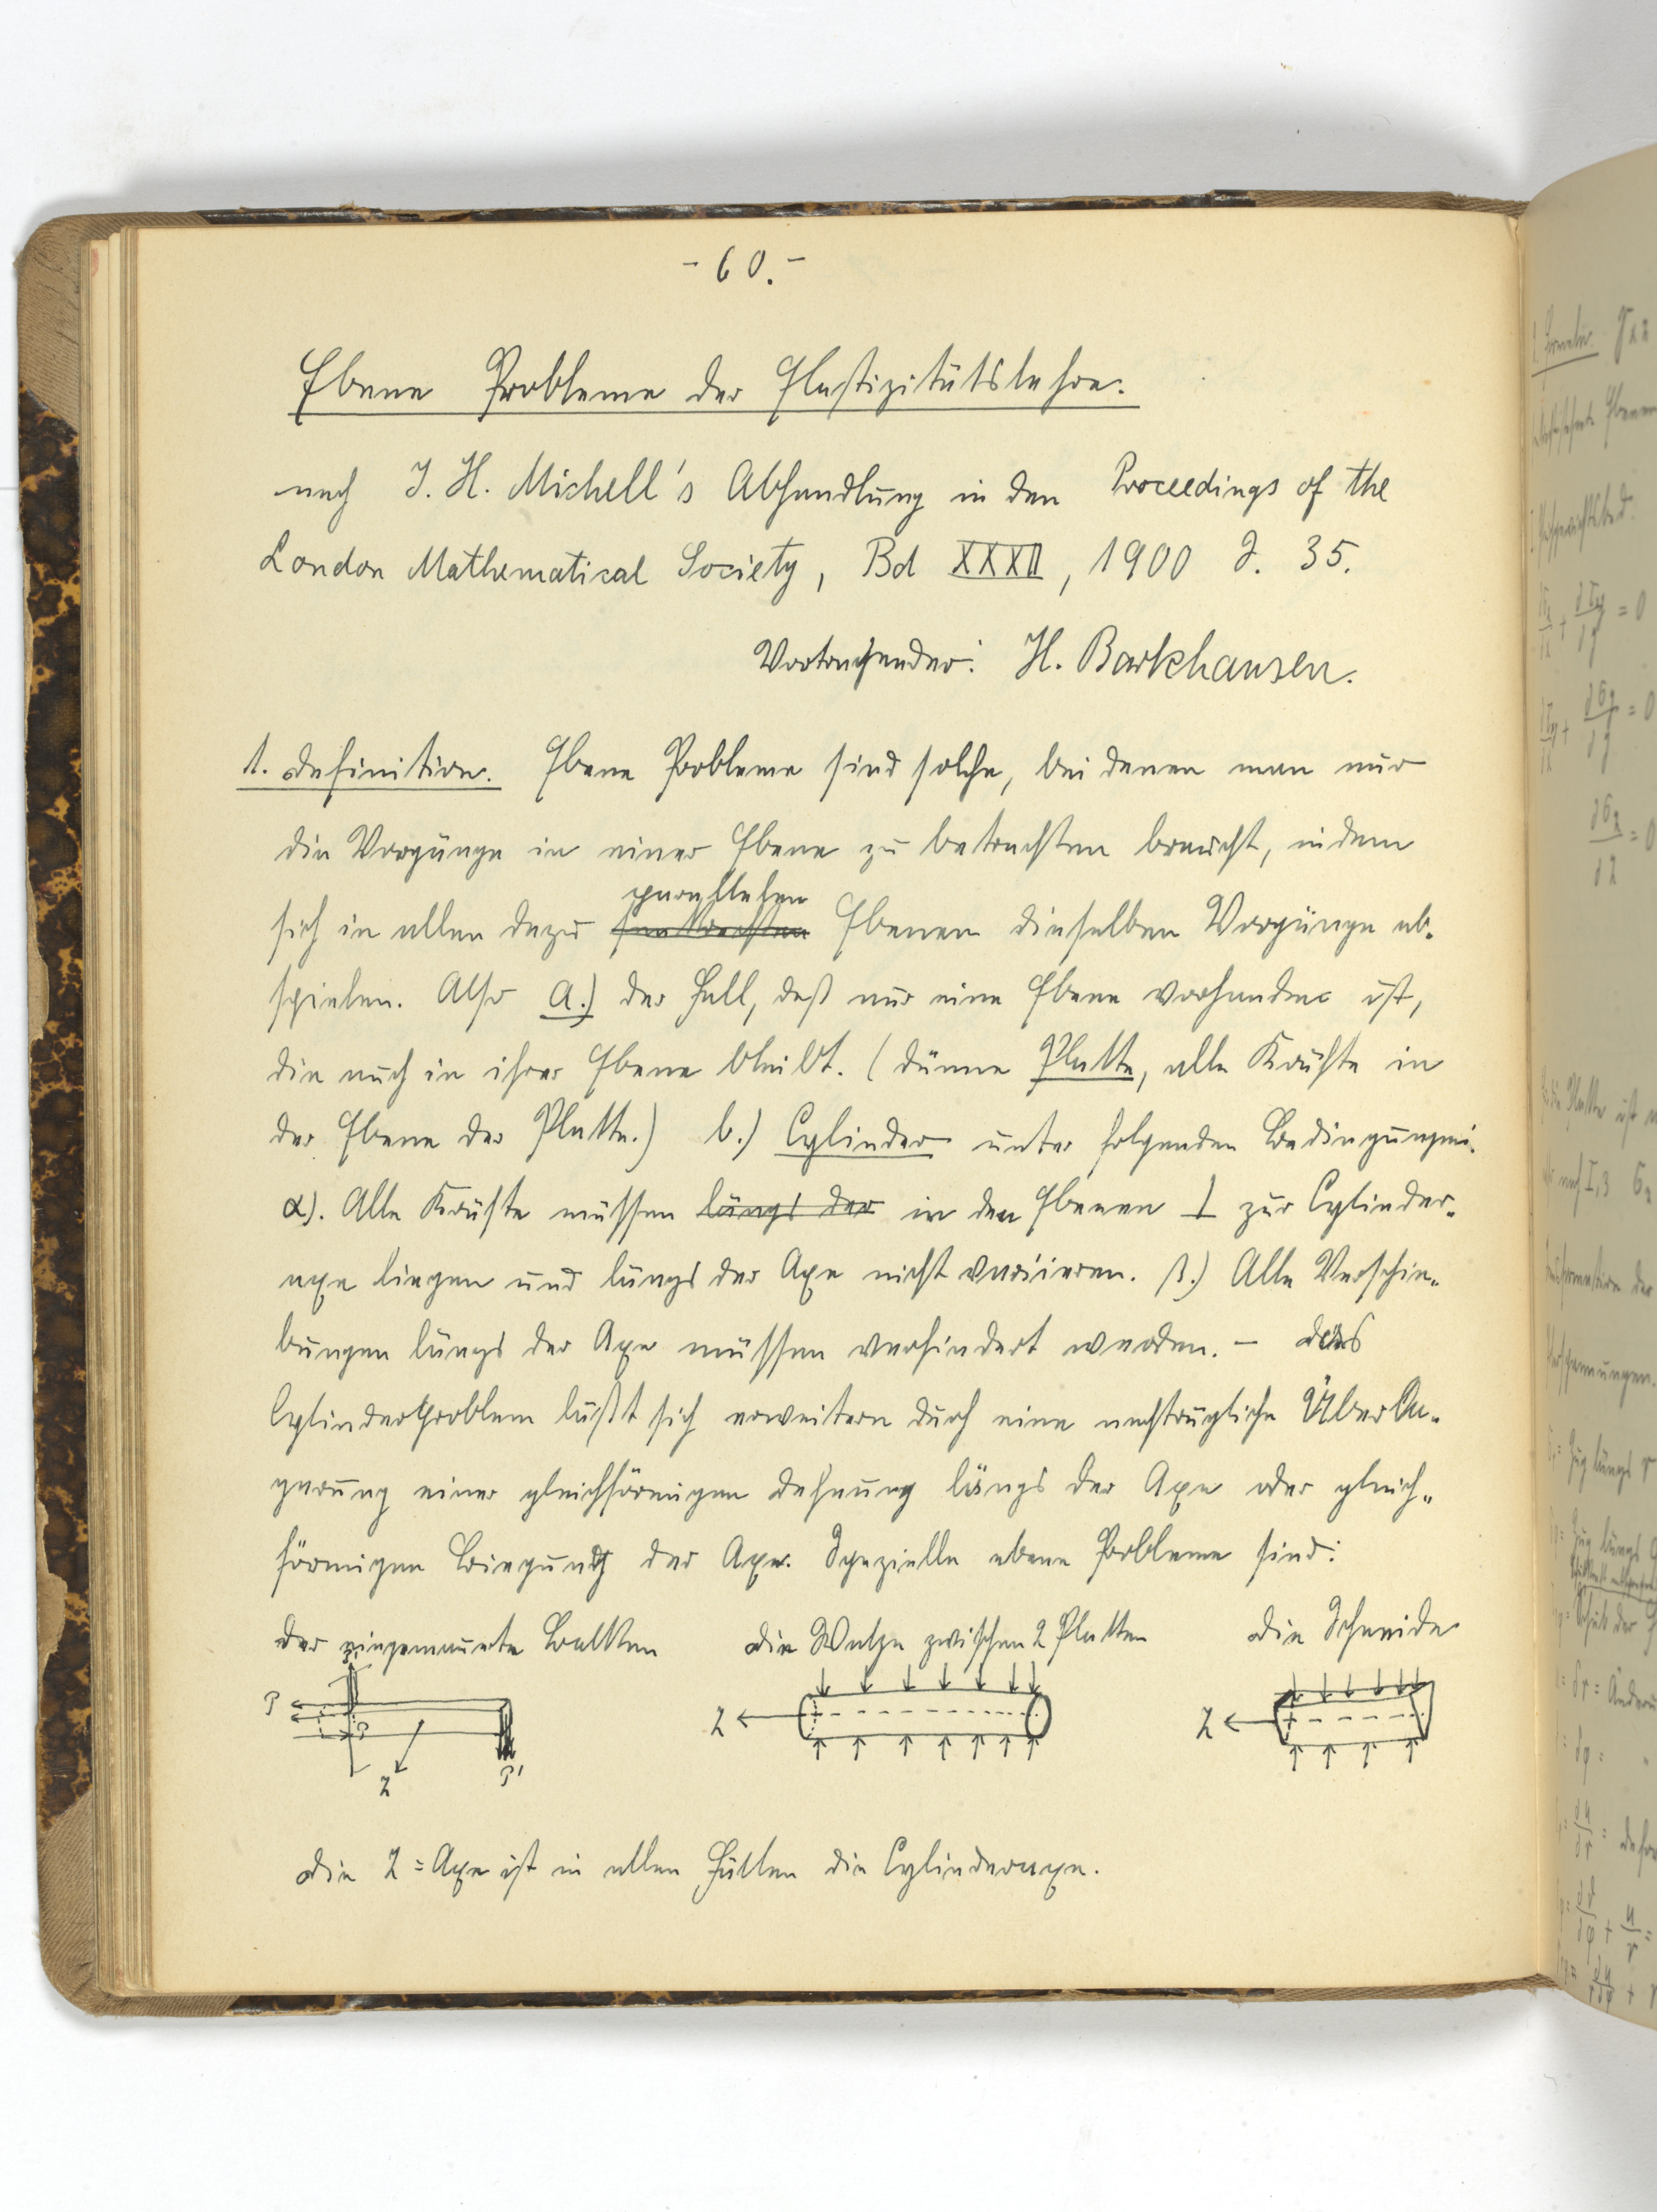 - 60. -
Ebene Probleme der Elastizitätslehre.
nach J. H. Michell's Abhandlung in den Proceedings of the
London Mathematical Society, Bd XXXII, 1900 S. 35.
Vortragender: H. Barkhausen.
1. Definition. Ebene Probleme sind solche, bei denen man nur
die Vorgänge in einer Ebene zu betrachten braucht, indem
parallelen
sich in allen dazu senkrechten Ebenen dieselben Vorgänge ab-
spielen. Also a.) der Fall, daß nur eine Ebene vorhanden ist,
die auch in ihrer Ebene bleibt. (dünne Platte, alle Kräfte in
der Ebene der Platte.) b.) Cylinder unter folgenden Bedingungen:
α). Alle Kräfte müssen längs der in den Ebenen ⊥ zur Cylinder-
axe liegen und längs der Axe nicht variieren. β.) Alle Verschie-
bungen längs der Axe müssen verhindert werden. — Das
Cylinderproblem läßt sich erweitern durch eine nachträgliche Überla-
gerung einer gleichförmigen Dehnung längs der Axe oder gleich-
förmigen Biegung der Axe. Spezielle ebene Probleme sind:
Der eingemauerte Balken die Walze zwischen 2 Platten die Schneide
P P Z P' Z Z
Die Z = Axe ist in allen Fällen die Cylinderaxe.